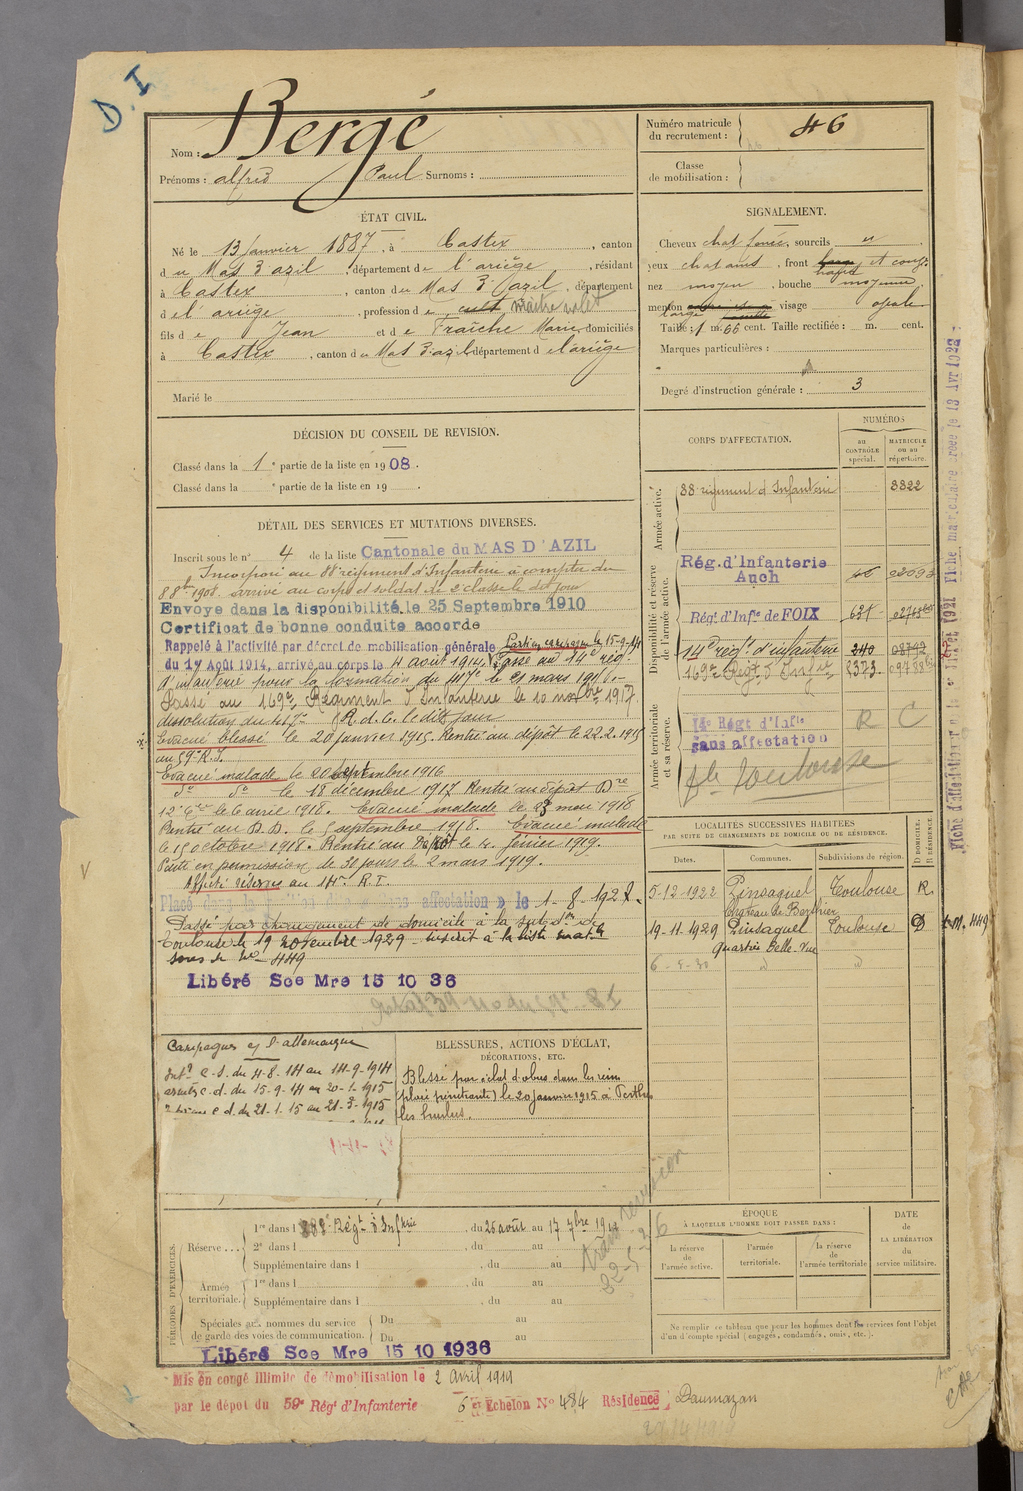 D. I
Nom : Bergé
Prénoms : alfred Paul Surnoms :
Numéro matricule du recrutement : 46
Classe de mobilisation :
ÉTAT CIVIL.
Né le 13 Janvier 1887, à Castex, canton
du Mas d'azil, département de l'ariège, résidant
à Castex, canton du Mas d'azil, département
de l'ariège, profession de cult maître valet
fils de Jean et de Fraîche Marie domiciliés
à Castex, canton du Mas d'azil département de l'ariège
Marié le
SIGNALEMENT.
Cheveux chat foncé, sourcils
yeux chatains, front et
nez moyen, bouche moyenne
menton large visage ovale
Taille : 1 m. 66 cent. Taille rectifiée : m. cent.
Marques particulières :
Degré d'instruction générale : 3
DÉCISION DU CONSEIL DE REVISION.
Classé dans la 1e partie de la liste en 1908.
Classé dans la e partie de la liste en 19 .
DÉTAIL DES SERVICES ET MUTATIONS DIVERSES.
Inscrit sous le n° 4 de la liste Cantonale du MAS D'AZIL
Incorporé au 88e régiment d'Infanterie à compter du
8 8bre 1908. arrivé au corps et soldat de 2e classe le dit jour
Envoye dans la disponibilité le 25 Septembre 1910
Certificat de bonne conduite accorde
Rappelé à l'activité par décret de mobilisation générale Parti en campagne le 15-9-14
du 1er Août 1914, arrivé au corps le 4 août 1914. Passé au 14e rég.
d'infanterie pour la formation du 417e le 21 mars 1916.
Passé au 169e Régiment d'Infanterie le 10 novbre 1917
dissolution du 417e (R. d. C. le dit jour
Evacué blessé le 20 janvier 1915. Rentré au dépôt le 22.2.1915
au 59e R.I.
Evacué malade le 20 septembre 1916
do do le 18 décembre 1917 Rentré au dépôt Dre
12e Gie le 6 avril 1918. Evacué malade le 23 mai 1918
Rentré au D.D. le 5 septembre 1918. Evacué malade
le 15 octobre 1918. Rentré au Dépôt le 4 février 1919.
Parti en permission de 30 jours le 2 mars 1919.
Affecté réserve au 14e R.I.
Placé dans la position dite « sans affectation » le 1-8-1927.
Passé par changement de domicile à la subdon de
Toulouse le 19 novembre 1929 inscrit à la liste matle
sous le no 449
Libéré Sce Mre 15 10 36
CORPS D'AFFECTATION.
NUMÉROS
au CONTRÔLE spécial.
MATRICULE ou au répertoire.
Armée active.
88e régiment d'Infanterie 8822
Disponibilité et réserve de l'armée active.
Rég. d'Infanterie Auch
Régt d'Infie de FOIX 621
14e régt d'infanterie 240
169e Régt d'Infie 8373
Armée territoriale et sa réserve.
14e Régt d'Infie R C
sans affectation
Toulouse
LOCALITÉS SUCCESSIVES HABITÉES
PAR SUITE DE CHANGEMENTS DE DOMICILE OU DE RÉSIDENCE.
Dates. Communes. Subdivisions de région. D DOMICILE. R RÉSIDENCE.
5-12-1922 Pinsaguel Toulouse R.
Chateau de Berthier
19-11-1929 Pinsaguel Toulouse D L.M. 449
Quartier Belle-Vue
Campagnes c/ l'allemagne
Intr C.S. du 4-8-14 au 14-9-1914
armées c. d. du 15-9-14 au 20-1-1915
c d. du 21-1-15 au 21-3-1915
BLESSURES, ACTIONS D'ÉCLAT, DÉCORATIONS, ETC.
Blessé par éclat d'obus dans les reins
(plaie pénétrante) le 20 janvier 1915 à Perthes
les hurlus.
PÉRIODES D'EXERCICES.
Réserve... 1re dans l 88e Régt d'Inftrie, du 25 août au 17 7bre 191
2e dans l , du au
Supplémentaire dans l , du au
Armée territoriale. 1re dans l , du au
Supplémentaire dans l , du au
Spéciales aux hommes du service de garde des voies de communication. Du au
Du au
ÉPOQUE
À LAQUELLE L'HOMME DOIT PASSER DANS :
la réserve de l'armée active.
l'armée territoriale.
la réserve de l'armée territoriale
DATE de LA LIBÉRATION du service militaire.
Ne remplir ce tableau que pour les hommes dont les services font l'objet
d'un compte spécial (engagés, condamnés, omis, etc.).
Libéré Sce Mre 15 10 1936
Mis en congé illimité de démobilisation le 2 Avril 1919
par le dépôt du 59e Régt d'Infanterie 6e Echelon No 484 Résidence Daumazan